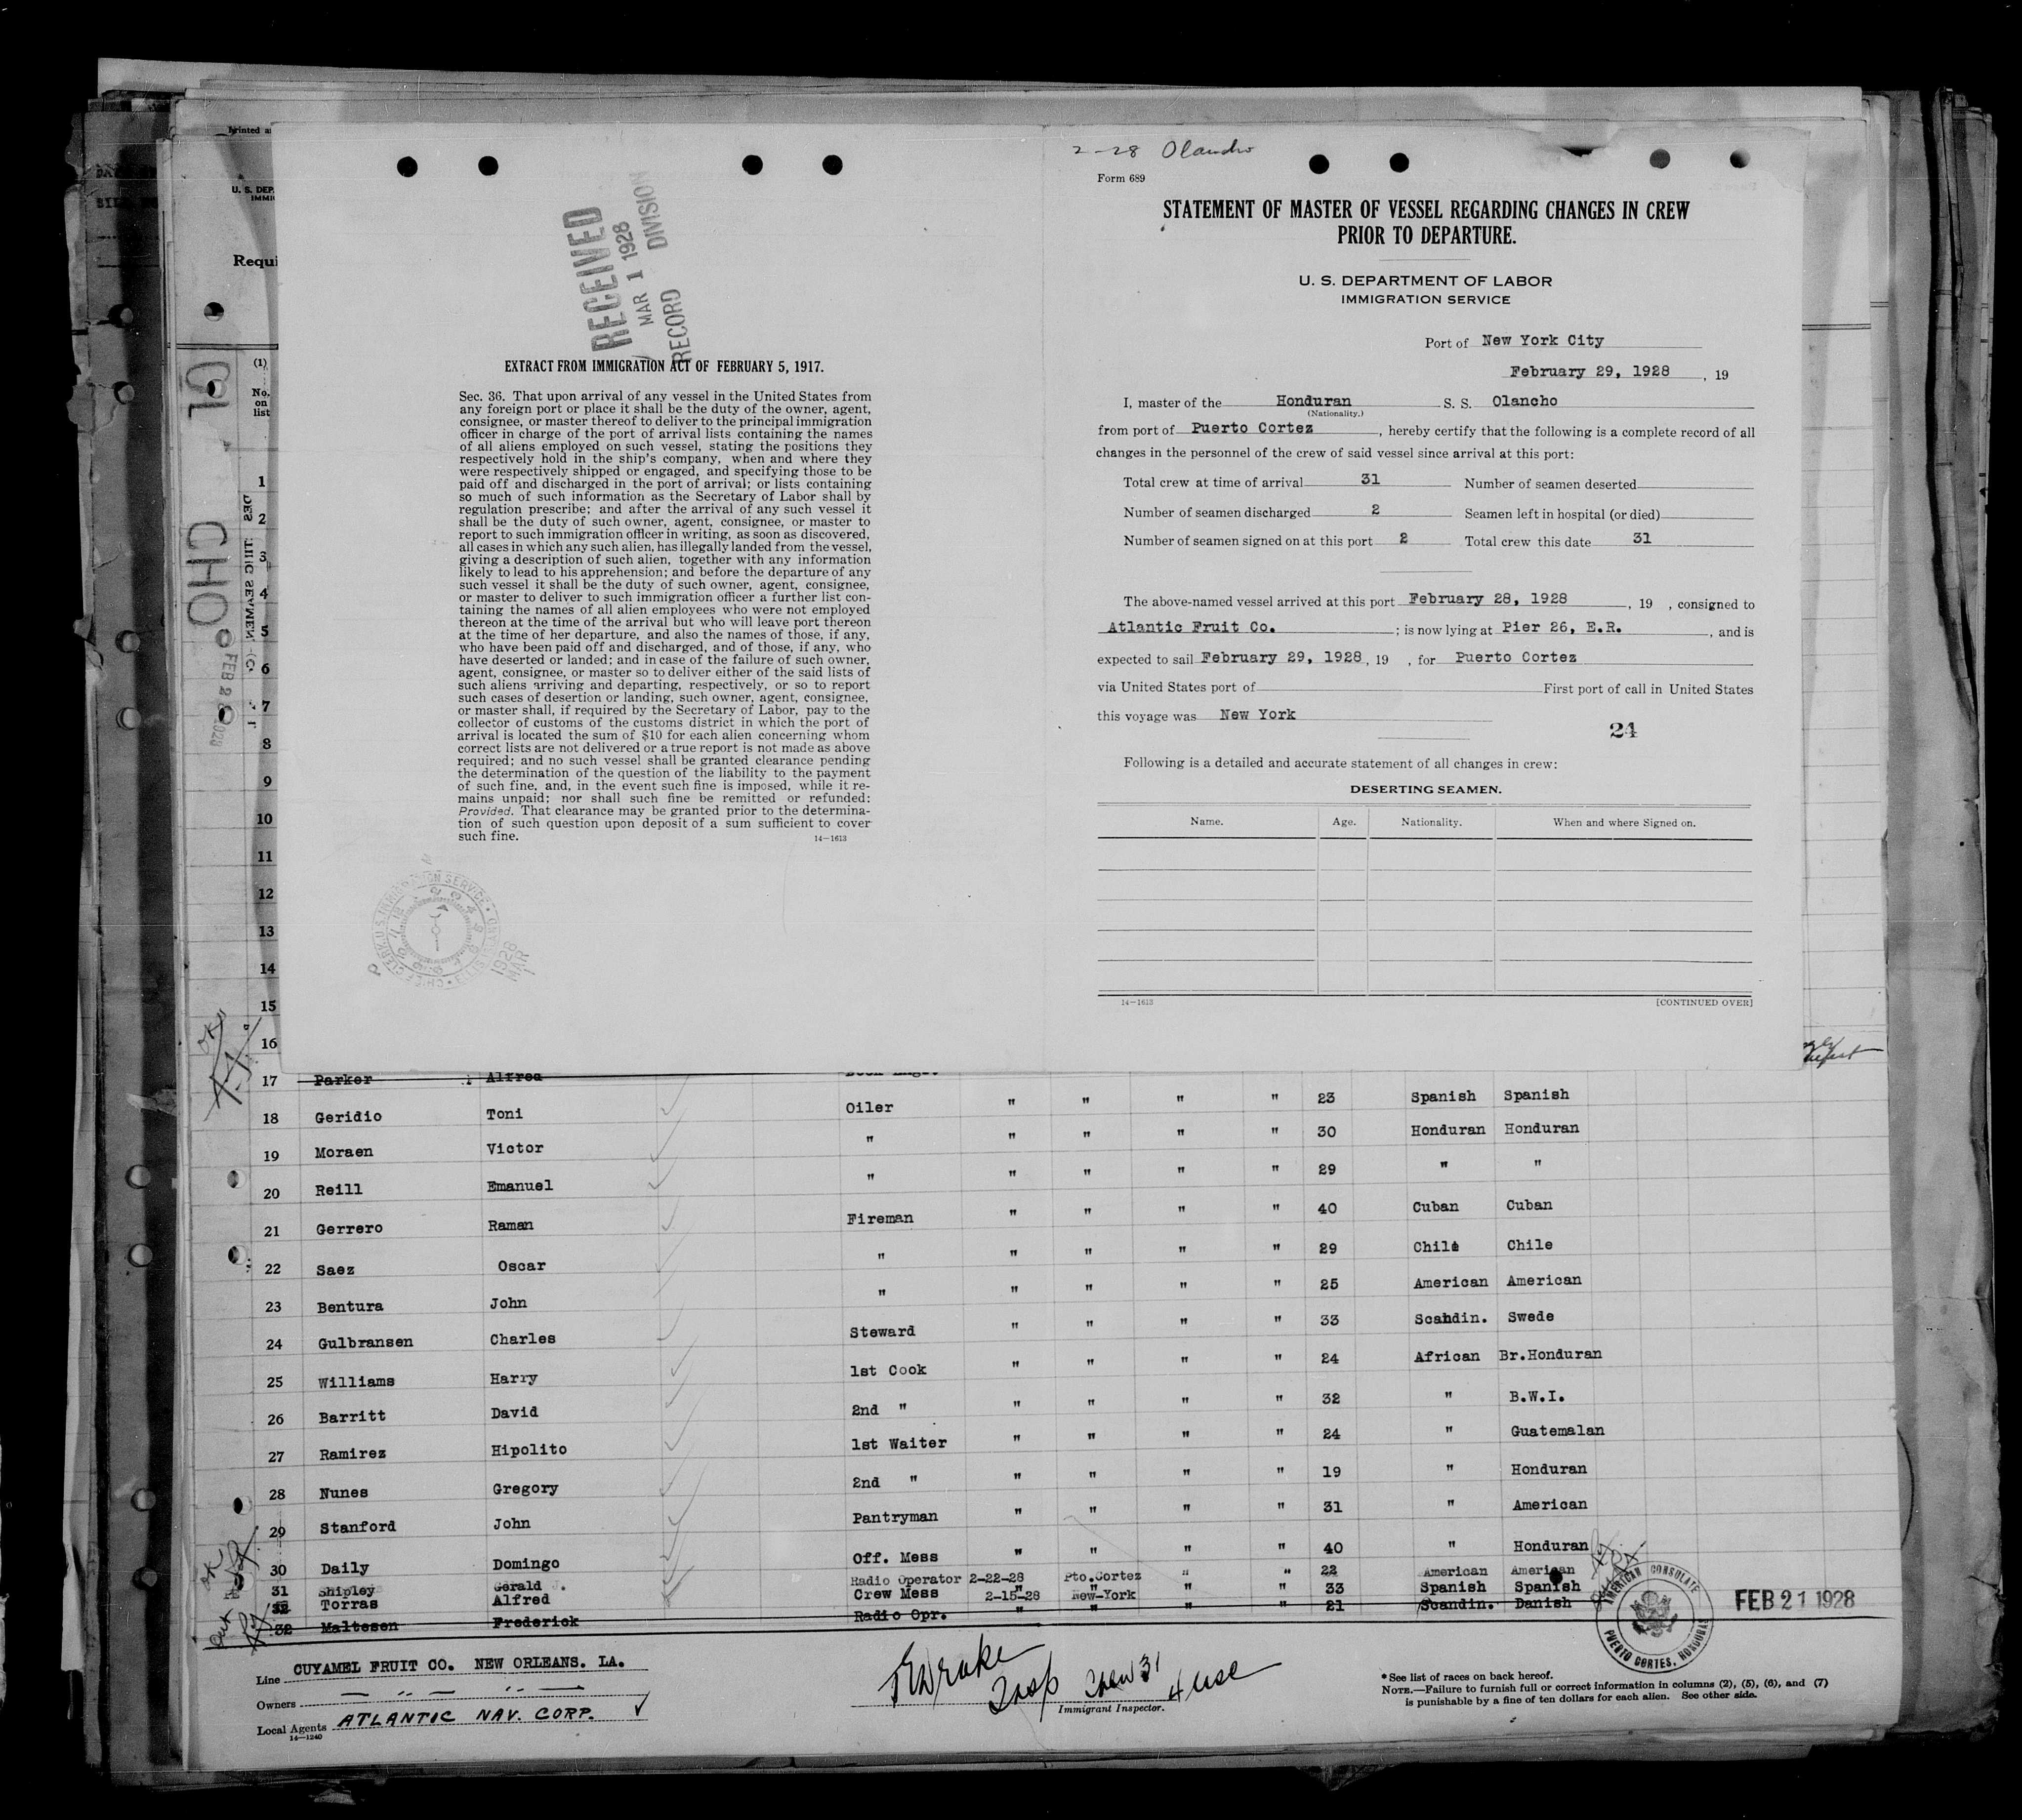 Printed a
U. S. DEP
IMMI
Requi
(1)
No.
on
list
RECEIVED
MAR 1 1928
RECORD DIVISION
EXTRACT FROM IMMIGRATION ACT OF FEBRUARY 5, 1917.
Sec. 36. That upon arrival of any vessel in the United States from
any foreign port or place it shall be the duty of the owner, agent,
consignee, or master thereof to deliver to the principal immigration
officer in charge of the port of arrival lists containing the names
of all aliens employed on such vessel, stating the positions they
respectively hold in the ship's company, when and where they
were respectively shipped or engaged, and specifying those to be
paid off and discharged in the port of arrival; or lists containing
so much of such information as the Secretary of Labor shall by
regulation prescribe; and after the arrival of any such vessel it
shall be the duty of such owner, agent, consignee, or master to
report to such immigration officer in writing, as soon as discovered,
all cases in which any such alien, has illegally landed from the vessel,
giving a description of such alien, together with any information
likely to lead to his apprehension; and before the departure of any
such vessel it shall be the duty of such owner, agent, consignee,
or master to deliver to such immigration officer a further list con-
taining the names of all alien employees who were not employed
thereon at the time of the arrival but who will leave port thereon
at the time of her departure, and also the names of those, if any,
who have been paid off and discharged, and of those, if any, who
have deserted or landed; and in case of the failure of such owner,
agent, consignee, or master so to deliver either of the said lists of
such aliens arriving and departing, respectively, or so to report
such cases of desertion or landing, such owner, agent, consignee,
or master shall, if required by the Secretary of Labor, pay to the
collector of customs of the customs district in which the port of
arrival is located the sum of $10 for each alien concerning whom
correct lists are not delivered or a true report is not made as above
required; and no such vessel shall be granted clearance pending
the determination of the question of the liability to the payment
of such fine, and, in the event such fine is imposed, while it re-
mains unpaid; nor shall such fine be remitted or refunded:
Provided. That clearance may be granted prior to the determina-
tion of such question upon deposit of a sum sufficient to cover
such fine. 14—1613
1928
MAR 1
2-28 Olancho
Form 689
STATEMENT OF MASTER OF VESSEL REGARDING CHANGES IN CREW
PRIOR TO DEPARTURE.
U. S. DEPARTMENT OF LABOR
IMMIGRATION SERVICE
Port of New York City
February 29, 1928, 19
I, master of the Honduran S. S. Olancho
(Nationality.)
from port of Puerto Cortez, hereby certify that the following is a complete record of all
changes in the personnel of the crew of said vessel since arrival at this port:
Total crew at time of arrival 31 Number of seamen deserted
Number of seamen discharged 2 Seamen left in hospital (or died)
Number of seamen signed on at this port 2 Total crew this date 31
The above-named vessel arrived at this port February 28, 1928, 19 , consigned to
Atlantic Fruit Co. ; is now lying at Pier 26, E.R. , and is
expected to sail February 29, 1928, 19 , for Puerto Cortez
via United States port of First port of call in United States
this voyage was New York
24
Following is a detailed and accurate statement of all changes in crew:
DESERTING SEAMEN.
Name. Age. Nationality. When and where Signed on.
14—1613 [CONTINUED OVER]
CHO
FEB 28 1928
1
2
3
4
5
6
7
8
9
10
11
12
13
14
15
16
17 Parker Alfred
18 Geridio Toni Oiler " " " " 23 Spanish Spanish
19 Moraen Victor " " " " " 30 Honduran Honduran
20 Reill Emanuel " " " " " 29 " "
21 Gerrero Raman Fireman " " " " 40 Cuban Cuban
22 Saez Oscar " " " " " 29 Chile Chile
23 Bentura John " " " " " 25 American American
24 Gulbransen Charles Steward " " " " 33 Scandin. Swede
25 Williams Harry 1st Cook " " " " 24 African Br.Honduran
26 Barritt David 2nd " " " " " 32 " B.W.I.
27 Ramirez Hipolito 1st Waiter " " " " 24 " Guatemalan
28 Nunes Gregory 2nd " " " " " 19 " Honduran
29 Stanford John Pantryman " " " " 31 " American
30 Daily Domingo Off. Mess " " " " 40 " Honduran
31 Shipley Gerald Radio Operator 2-22-28 Pto.Cortez " " 22 American American
32 Torras Alfred Crew Mess 2-15-28 New-York " " 33 Spanish Spanish
32 Maltesen Frederick Radio Opr. " " " " 21 Scandin. Danish
AMERICAN CONSULATE
PUERTO CORTES, HONDURAS
FEB 21 1928
Line CUYAMEL FRUIT CO. NEW ORLEANS. LA.
Owners — " — " —
Local Agents ATLANTIC NAV. CORP.
14—1240
Insp Crew 31
Immigrant Inspector.
* See list of races on back hereof.
NOTE.—Failure to furnish full or correct information in columns (2), (5), (6), and (7)
is punishable by a fine of ten dollars for each alien. See other side.